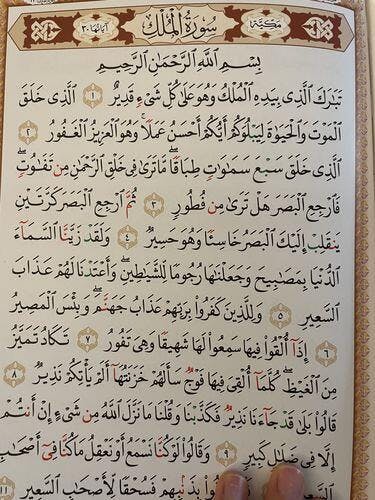 مكية
سُورَةُ الْمُلْكِ
آياتها ٣٠
بِسْمِ اللَّهِ الرَّحْمَٰنِ الرَّحِيمِ
تَبَٰرَكَ الَّذِي بِيَدِهِ الْمُلْكُ وَهُوَ عَلَىٰ كُلِّ شَيْءٍ قَدِيرٌ ١ الَّذِي خَلَقَ
الْمَوْتَ وَالْحَيَوٰةَ لِيَبْلُوَكُمْ أَيُّكُمْ أَحْسَنُ عَمَلًا ۚ وَهُوَ الْعَزِيزُ الْغَفُورُ ٢
الَّذِي خَلَقَ سَبْعَ سَمَٰوَٰتٍ طِبَاقًا ۖ مَّا تَرَىٰ فِي خَلْقِ الرَّحْمَٰنِ مِن تَفَٰوُتٍ ۖ
فَارْجِعِ الْبَصَرَ هَلْ تَرَىٰ مِن فُطُورٍ ٣ ثُمَّ ارْجِعِ الْبَصَرَ كَرَّتَيْنِ
يَنقَلِبْ إِلَيْكَ الْبَصَرُ خَاسِئًا وَهُوَ حَسِيرٌ ٤ وَلَقَدْ زَيَّنَّا السَّمَاءَ
الدُّنْيَا بِمَصَٰبِيحَ وَجَعَلْنَٰهَا رُجُومًا لِّلشَّيَٰطِينِ ۖ وَأَعْتَدْنَا لَهُمْ عَذَابَ
السَّعِيرِ ٥ وَلِلَّذِينَ كَفَرُوا بِرَبِّهِمْ عَذَابُ جَهَنَّمَ ۖ وَبِئْسَ الْمَصِيرُ
٦ إِذَا أُلْقُوا فِيهَا سَمِعُوا لَهَا شَهِيقًا وَهِيَ تَفُورُ ٧ تَكَادُ تَمَيَّزُ
مِنَ الْغَيْظِ ۖ كُلَّمَا أُلْقِيَ فِيهَا فَوْجٌ سَأَلَهُمْ خَزَنَتُهَا أَلَمْ يَأْتِكُمْ نَذِيرٌ ٨
قَالُوا بَلَىٰ قَدْ جَاءَنَا نَذِيرٌ فَكَذَّبْنَا وَقُلْنَا مَا نَزَّلَ اللَّهُ مِن شَيْءٍ إِنْ أَنتُمْ
إِلَّا فِي ضَلَٰلٍ كَبِيرٍ ٩ وَقَالُوا لَوْ كُنَّا نَسْمَعُ أَوْ نَعْقِلُ مَا كُنَّا فِي أَصْحَٰبِ
بِذَنبِهِمْ فَسُحْقًا لِّأَصْحَٰبِ السَّعِيرِ ١١